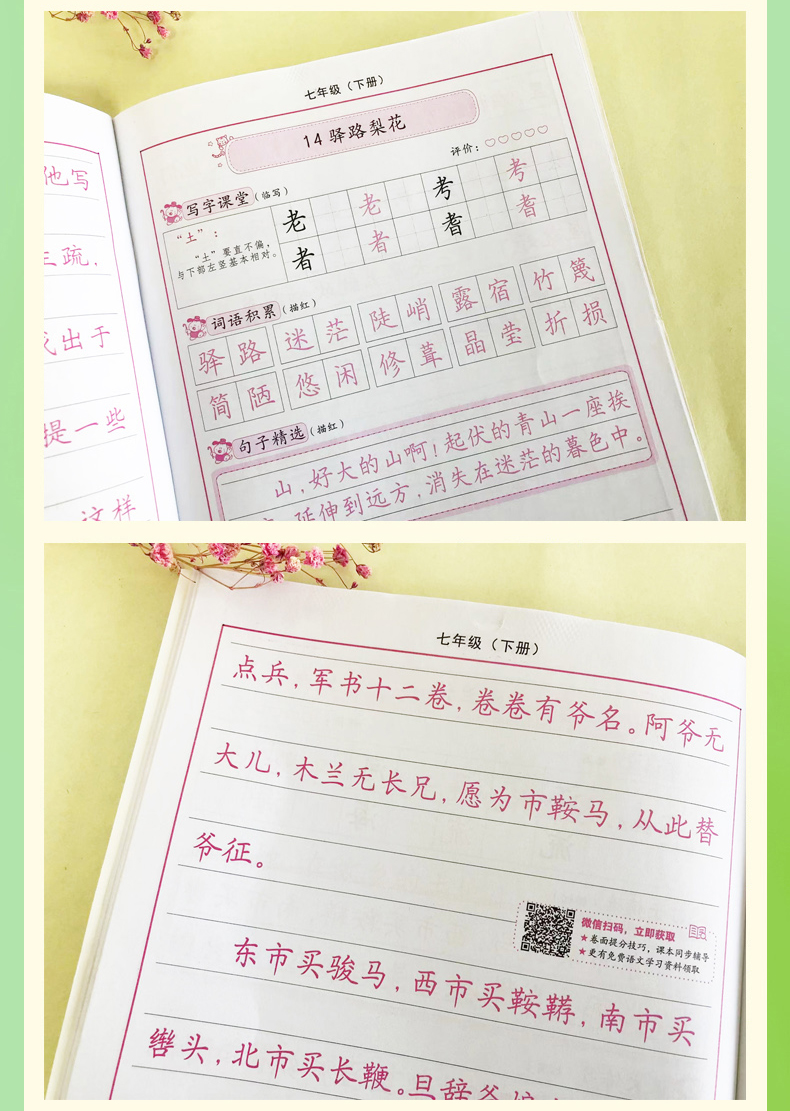 他写
三疏，
出于
提一些
这样
七年级（下册）
14 驿路梨花
评价：
写字课堂（临写）
“土”：
“土”要直不偏，
与下部左竖基本相对。
老 老 考 考
者 者 耆 耆
词语积累（描红）
驿路 迷茫 陡峭 露宿 竹篾
简陋 悠闲 修葺 晶莹 折损
句子精选（描红）
山，好大的山啊！起伏的青山一座挨
延伸到远方，消失在迷茫的暮色中。
七年级（下册）
点兵，军书十二卷，卷卷有爷名。阿爷无
大儿，木兰无长兄，愿为市鞍马，从此替
爷征。
微信扫码，立即获取
★卷面提分技巧，课本同步辅导
★更有免费语文学习资料领取
东市买骏马，西市买鞍鞯，南市买
辔头，北市买长鞭。旦辞爷